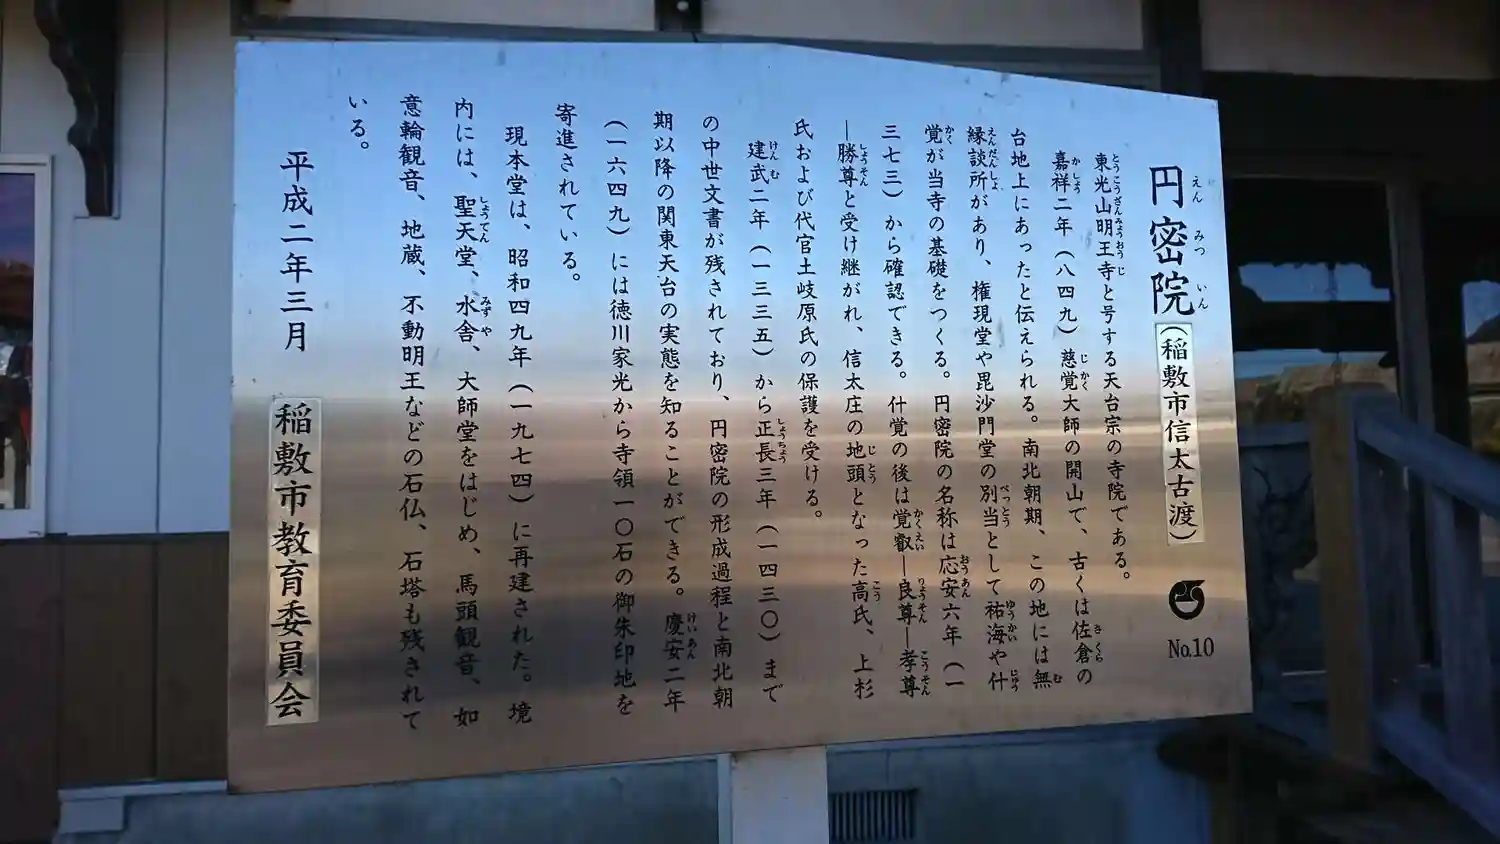 円密院（稲敷市信太古渡）
No.10
東光山明王寺と号する天台宗の寺院である。
嘉祥二年（八四九）慈覚大師の開山で、古くは佐倉の
台地上にあったと伝えられる。南北朝期、この地には無
縁談所があり、権現堂や毘沙門堂の別当として祐海や什
覚が当寺の基礎をつくる。円密院の名称は応安六年（一
三七三）から確認できる。什覚の後は覚叡―良尊―孝尊
―勝尊と受け継がれ、信太庄の地頭となった高氏、上杉
氏および代官土岐原氏の保護を受ける。
建武二年（一三三五）から正長三年（一四三〇）まで
の中世文書が残されており、円密院の形成過程と南北朝
期以降の関東天台の実態を知ることができる。慶安二年
（一六四九）には徳川家光から寺領一〇石の御朱印地を
寄進されている。
現本堂は、昭和四九年（一九七四）に再建された。境
内には、聖天堂、水舎、大師堂をはじめ、馬頭観音、如
意輪観音、地蔵、不動明王などの石仏、石塔も残されて
いる。
平成二年三月　稲敷市教育委員会